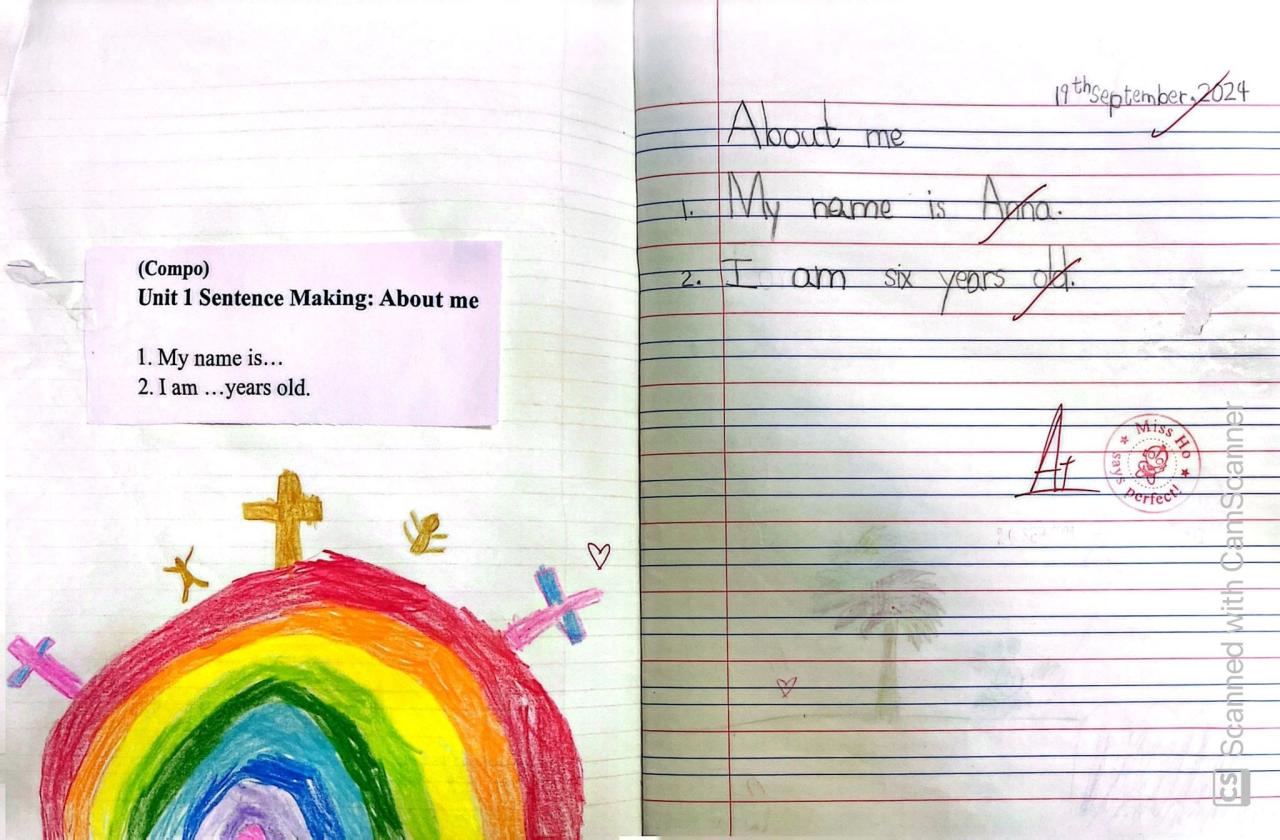 (Compo)
Unit 1 Sentence Making: About me
1. My name is...
2. I am ...years old.
19th September. 2024
About me
1. My name is Anna.
2. I am six years old.
A+
Miss Ho
says perfect!
CS Scanned with CamScanner